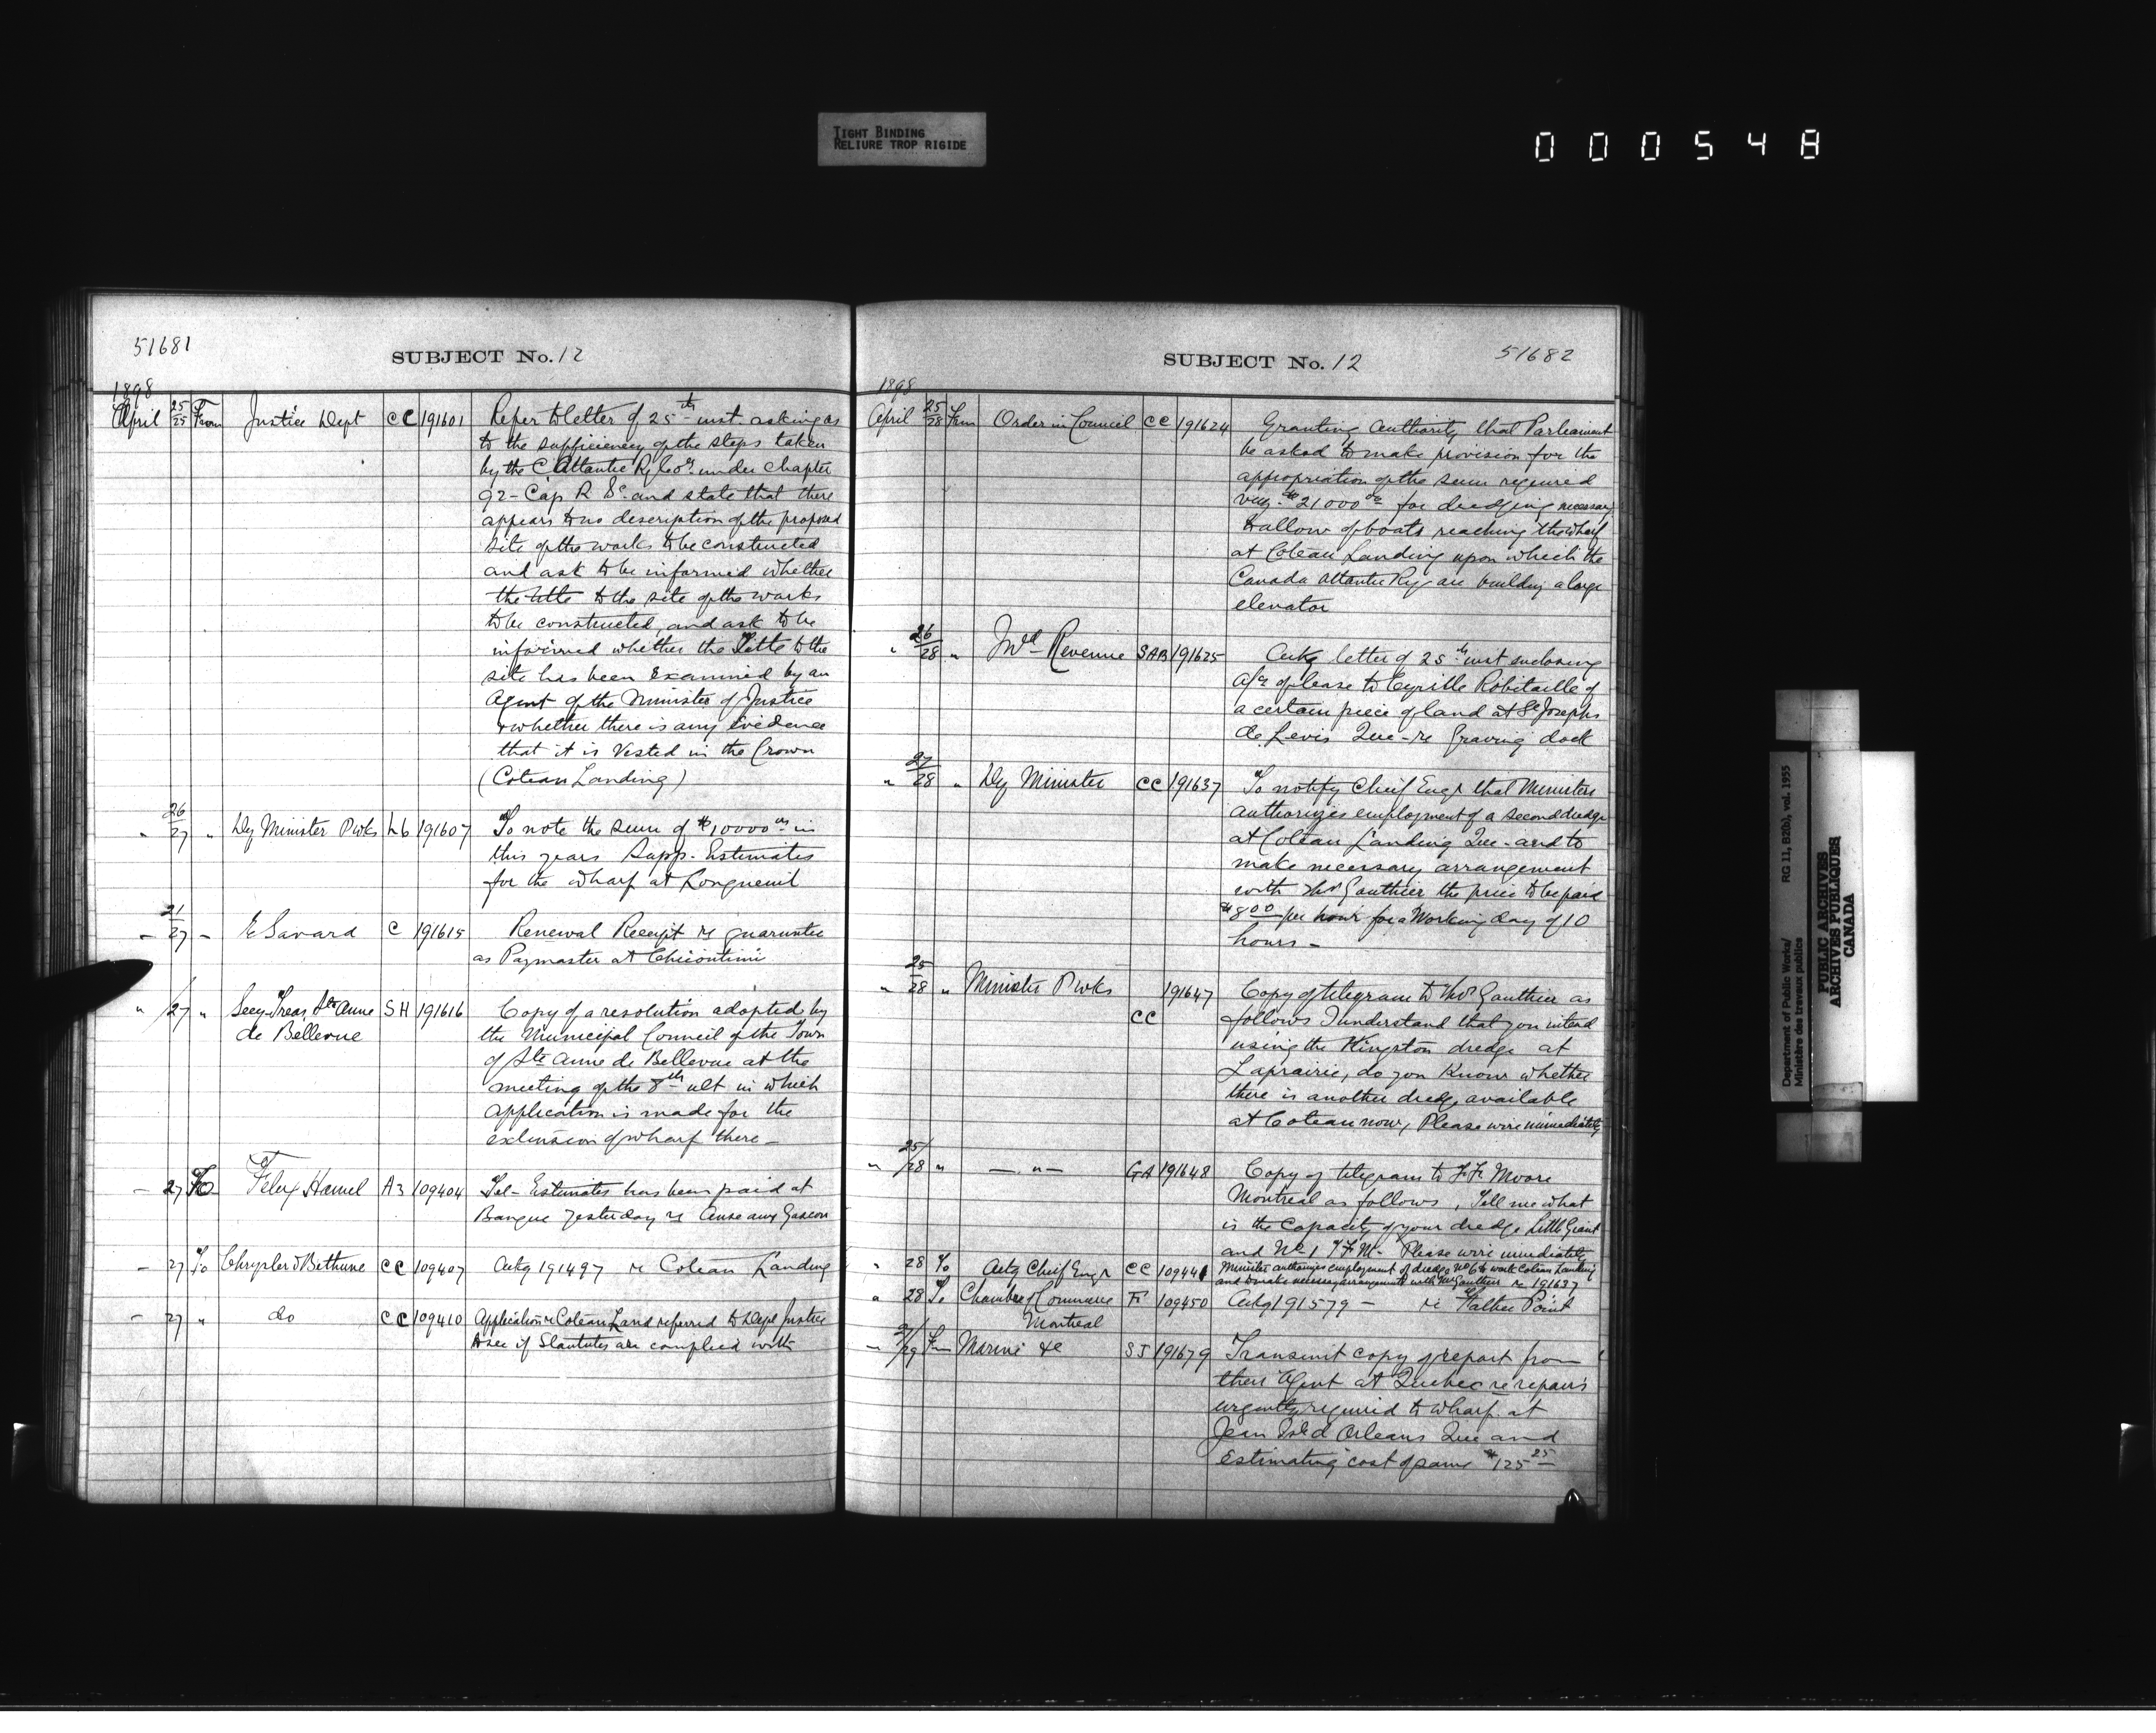 TIGHT BINDING
RELIURE TROP RIGIDE
000548
51681
SUBJECT No. 12
1898
April 25/25 From Justice Dept CC 191601 Refer to letter of 25th inst. asking as
to the sufficiency of the steps taken
by the C Atlantic Ry Coy. under chapter
92 - Cap R S C. and state that there
appears to no description of the proposed
site of the works to be constructed
and ask to be informed whether
the title to the site of the works
to be constructed, and ask to be
informed whether the Title to the
site has been Examined by an
Agent of the Minister of Justice
& whether there is any Evidence
that it is Vested in the Crown
(Coteau Landing)
" 26/27 " Dy Minister Pwks L6 191607 To note the sum of $10000 00 in
this years Supp. Estimates
for the wharf at Longueuil
- 21/27 - E Savard C 191615 Renewal Receipt re guarantee
as Paymaster at Chicoutimi
" /27 " Secy Treas, Ste Anne SH 191616 Copy of a resolution adopted by
de Bellevue the Municipal Council of the Town
of Ste Anne de Bellevue at the
meeting of the 8th ult in which
application is made for the
extension of wharf there -
- 27 To Felix Hamel A3 109404 Tel - Estimates has been paid at
Banque yesterday re Anse aux Gascon
- 27 To Chrysler & Bethune CC 109407 Ackg 191497 re Coteau Landing
- 27 " do CC 109410 Application re Coteau Land referred to Dept Justice
to see if Staututes are complied with
SUBJECT No. 12
51682
1898
April 25/28 From Order in Council CC 191624 Granting authority that Parliament
be asked to make provision for the
appropriation of the sum required
viz. $21000 00 for dredging necessary
to allow of boats reaching the wharf
at Coteau Landing upon which the
Canada Atlantic Ry are building a large
elevator
" 26/28 " Ind Revenue SAB 191625 Ackg letter of 25th inst enclosing
of lease to Cyrille Robitaille of
a certain piece of land at St Josephs
de Levis Que - re Graving dock
" 27/28 " Dy Minister CC 191637 To notify Cheif Engr that Minister
authorizes employment of a second dredge
at Coteau Landing Que - and to
make necessary arrangement
with Mr Gauthier the price to be paid
$8 00 per hour for a Working day of 10
hours -
" 25/28 " Minister Pwks 191647 Copy of telegram to Mr Gauthier as
CC follows I understand that you intend
using the Kingston dredge at
Laprairie, do you Know whether
there is another dredge available
at Coteau now, Please wire immediately
" 25/28 " - " - GA 191648 Copy of telegram to F. F. Moore
Montreal as follows, Tell me what
is the capacity of your dredge Little Grant
and No 1 Please wire immediately
" 28 To Actg Cheif Engr CC 109441 Minister authorizes employment of dredge No 6 to work Coteau Landing
and to make necessary arrangements with Mr Gauthier re 191637
" 28 To Chamber of Commerce F 109450 Ackg 191579 - re Father Point
Montreal
- /29 Fm Marine &c SJ 191679 Transmit copy of report from
their Agent at Quebec re repairs
urgently required to wharf at
Jean Isld Orleans Que and
Estimating cost of same $125 25
Department of Public Works/
Ministère des travaux publics
RG 11, B2(b), vol. 1955
PUBLIC ARCHIVES
ARCHIVES PUBLIQUES
CANADA